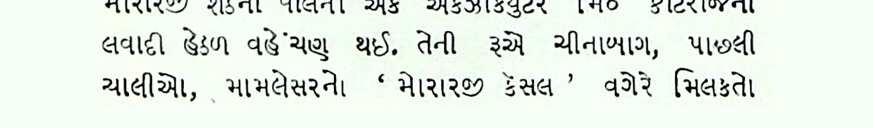 મોરારજી શેઠના વીલના એક એકઝીકયુટર મિ૦ કાટરાજની
લવાદી હેઠળ વહેંચણ થઈ. તેની રૂએ ચીનાબાગ, પાછલી
ચાલીઓ, મામલેસરનો ‘ મોરારજી કૅસલ ’ વગેરે મિલકતો